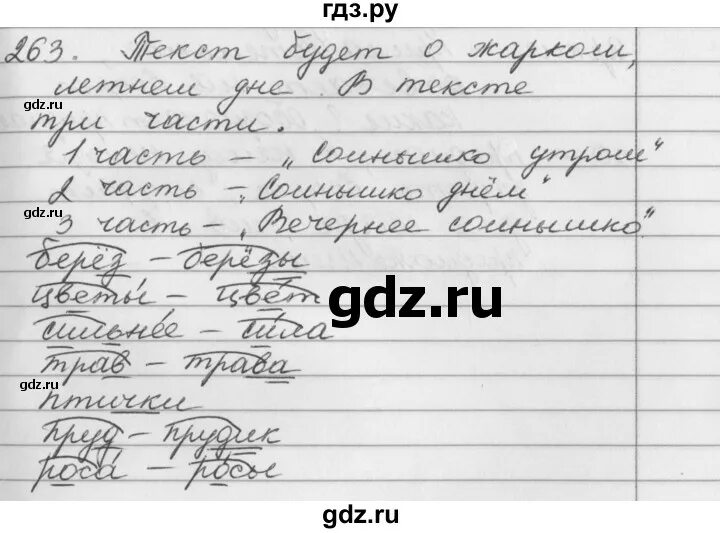 гдз.ру
263. Текст будет о жарком,
летнем дне. В тексте
gdz.ru
три части.
1 часть – „Солнышко утром“
2 часть – „Солнышко днём“
3 часть – „Вечернее солнышко“.
gdz.ru
берёз – берёзы
цветы́ – цве́т
gdz.ru
сильне́е – си́ла
трав – трава
gdz.ru
птички
пруд – прудик
роса́ – ро́сы
gdz.ru
gdz.ru